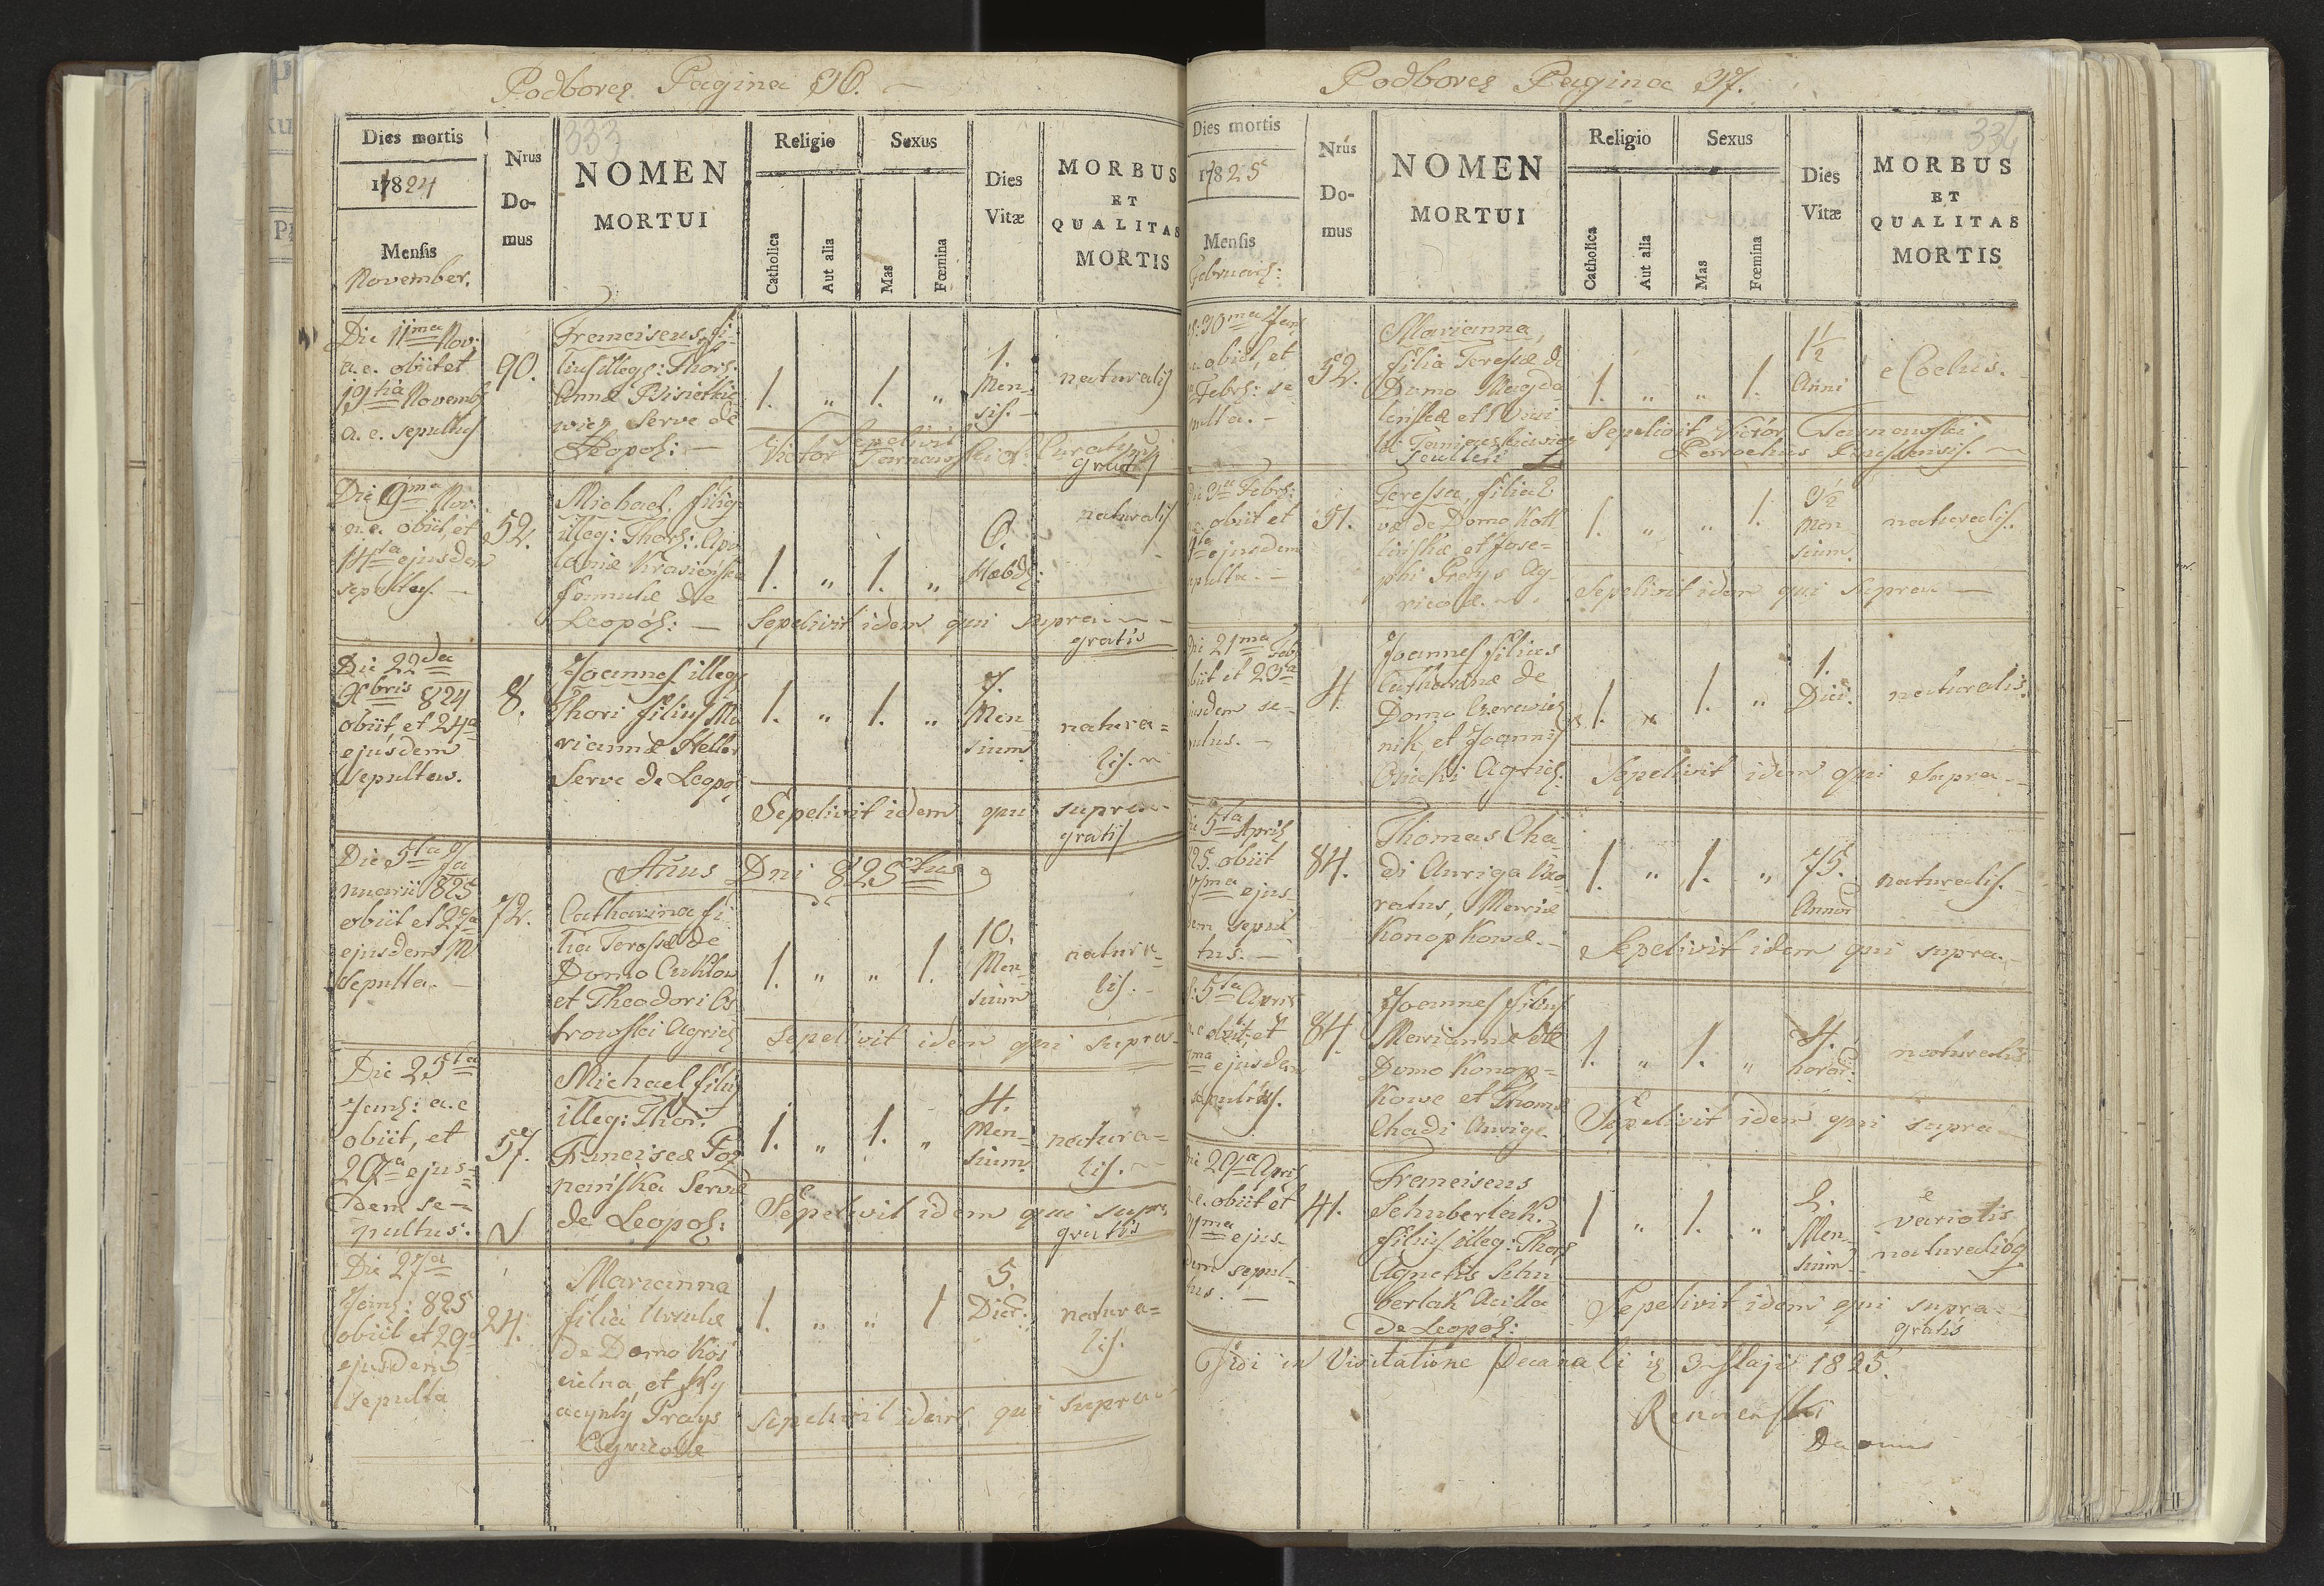 Podborez Pagina 36.
333
Dies mortis
1824
Mensis
November.
Nrus
Do-
mus
NOMEN
MORTUI
Religio
Catholica
Aut alia
Sexus
Mas
Fœmina
Dies
Vitæ
MORBUS
ET
QUALITAS
MORTIS
Die 11ma Nov:
a.c. obiit et
Novemb
a.c. sepultus
90.
Franciscus, fi-
lius illeg: Thori:
Annæ
Servæ de
Leopol: —
1. „ 1. „
1.
Men-
sis. —
naturalis
Sepelivit
Victor Tarnawski Curatus
gratis
Die 9ma Nov:
a.c. obiit, et
14ta ejusdem
sepultus. —
52.
Michael, filius
illeg: Thori: Apo-
loniæ
famulæ de
Leopol: —
1. „ 1. „
6.
Hebd:
naturalis
Sepelivit idem qui supra —
gratis
Die 22da
Xbris 824
obiit, et 24a
ejusdem
Sepultus.
8.
Joannes illeg
Thori filius Ma
riannæ Heller
Servæ de Leopol
1. „ 1. „
7.
Men
sium
natura=
lis. —
Sepelivit idem qui supra —
gratis
Anus Dni 825tus
Die 5ta Ja
nuarii 825
obiit et 27a
ejusdem M
Sepulta. —
72.
Catharina fi
lia Teressæ de
Domo Cuklow
et Theodori Os
trowski Agricol
1. „ „ 1.
10.
Men-
sium
natura-
lis. —
Sepelivit idem qui supra —
Die 25ta
Janu: a.c
obiit, et
ejus=
dem se—
pultus.
57.
Michael, filius
illeg: Thor:
Franciscæ Poz
nańska Servæ
de Leopol:
1. „ 1. „
4.
Men-
sium.
natura=
lis. —
Sepelivit idem qui supra
gratis
Die 27a
Janu: 825
obiit et 29a
ejusdem
sepulta
24.
Marianna
filia Ursulæ
de Domo Koś
cielna, et Hy
acynthy Prays
Agricolæ
1. „ „ 1
5.
Dier:
natura=
lis.
Sepelivit idem qui supra —
Podborez Pagina 37.
334
Dies mortis
1825
Mensis
Februari:
Nrus
Do-
mus
NOMEN
MORTUI
Religio
Catholica
Aut alia
Sexus
Mas
Fœmina
Dies
Vitæ
MORBUS
ET
QUALITAS
MORTIS
30ma Jan
obiit, et
Febr: se
pulta. —
52.
Marianna,
filia Teressæ d
Domo Magda
lenskæ et
1. „ „ 1.
1½
Anni
Sepelivit Victor Tarnawski
Parochus
Die 3a Febr:
a.c. obiit et
4ta ejusdem
sepulta. —
51.
Teressa, filia E
væ de Domo Kott
lińskæ et Jose=
phi Prays Ag-
ricolæ. —
1. „ „ 1.
3½
Men
sium.
naturalis.
Sepelivit idem qui supra —
Die 21ma Feb
obiit et 23a
ejusdem se-
pultus. —
4.
Joannes filius
Catharinæ de
Domo Czerewicz
nik, et Joannis
Agric:
1. „ 1. „
1.
Diei.
naturalis.
Sepelivit idem qui supra. —
Die 5ta Apris
825. obiit
7ma ejus-
dem sepul
tus. —
84.
Thomas Cha
di Auriga Uxo
ratus, Mariæ
Konopkowæ. —
1. „ 1. „
75.
Annor
naturalis.
Sepelivit idem qui supra. —
5ta Apris
a.c obiit, et
7ma ejusdem
sepultus.
84.
Joannes filius
Mariannæ de
Domo Konop=
kowe et Thomæ
Chadi Aurigæ
1. „ 1. „
4.
horar:
naturalis
Sepelivit idem qui supra —
Die 29a Apris
a.c. obiit et
ejus-
dem sepul-
tus. —
41.
Franciscus
Schuberlak.
filius illeg: Thori
Agnetis Schu
berlak Acilla
de Leopol:
1 „ 1. „
2.
Men-
sium
e
variolis
naturalibq
Sepelivit idem qui supra —
gratis
Vidi in Visitatione Decanali 1825.